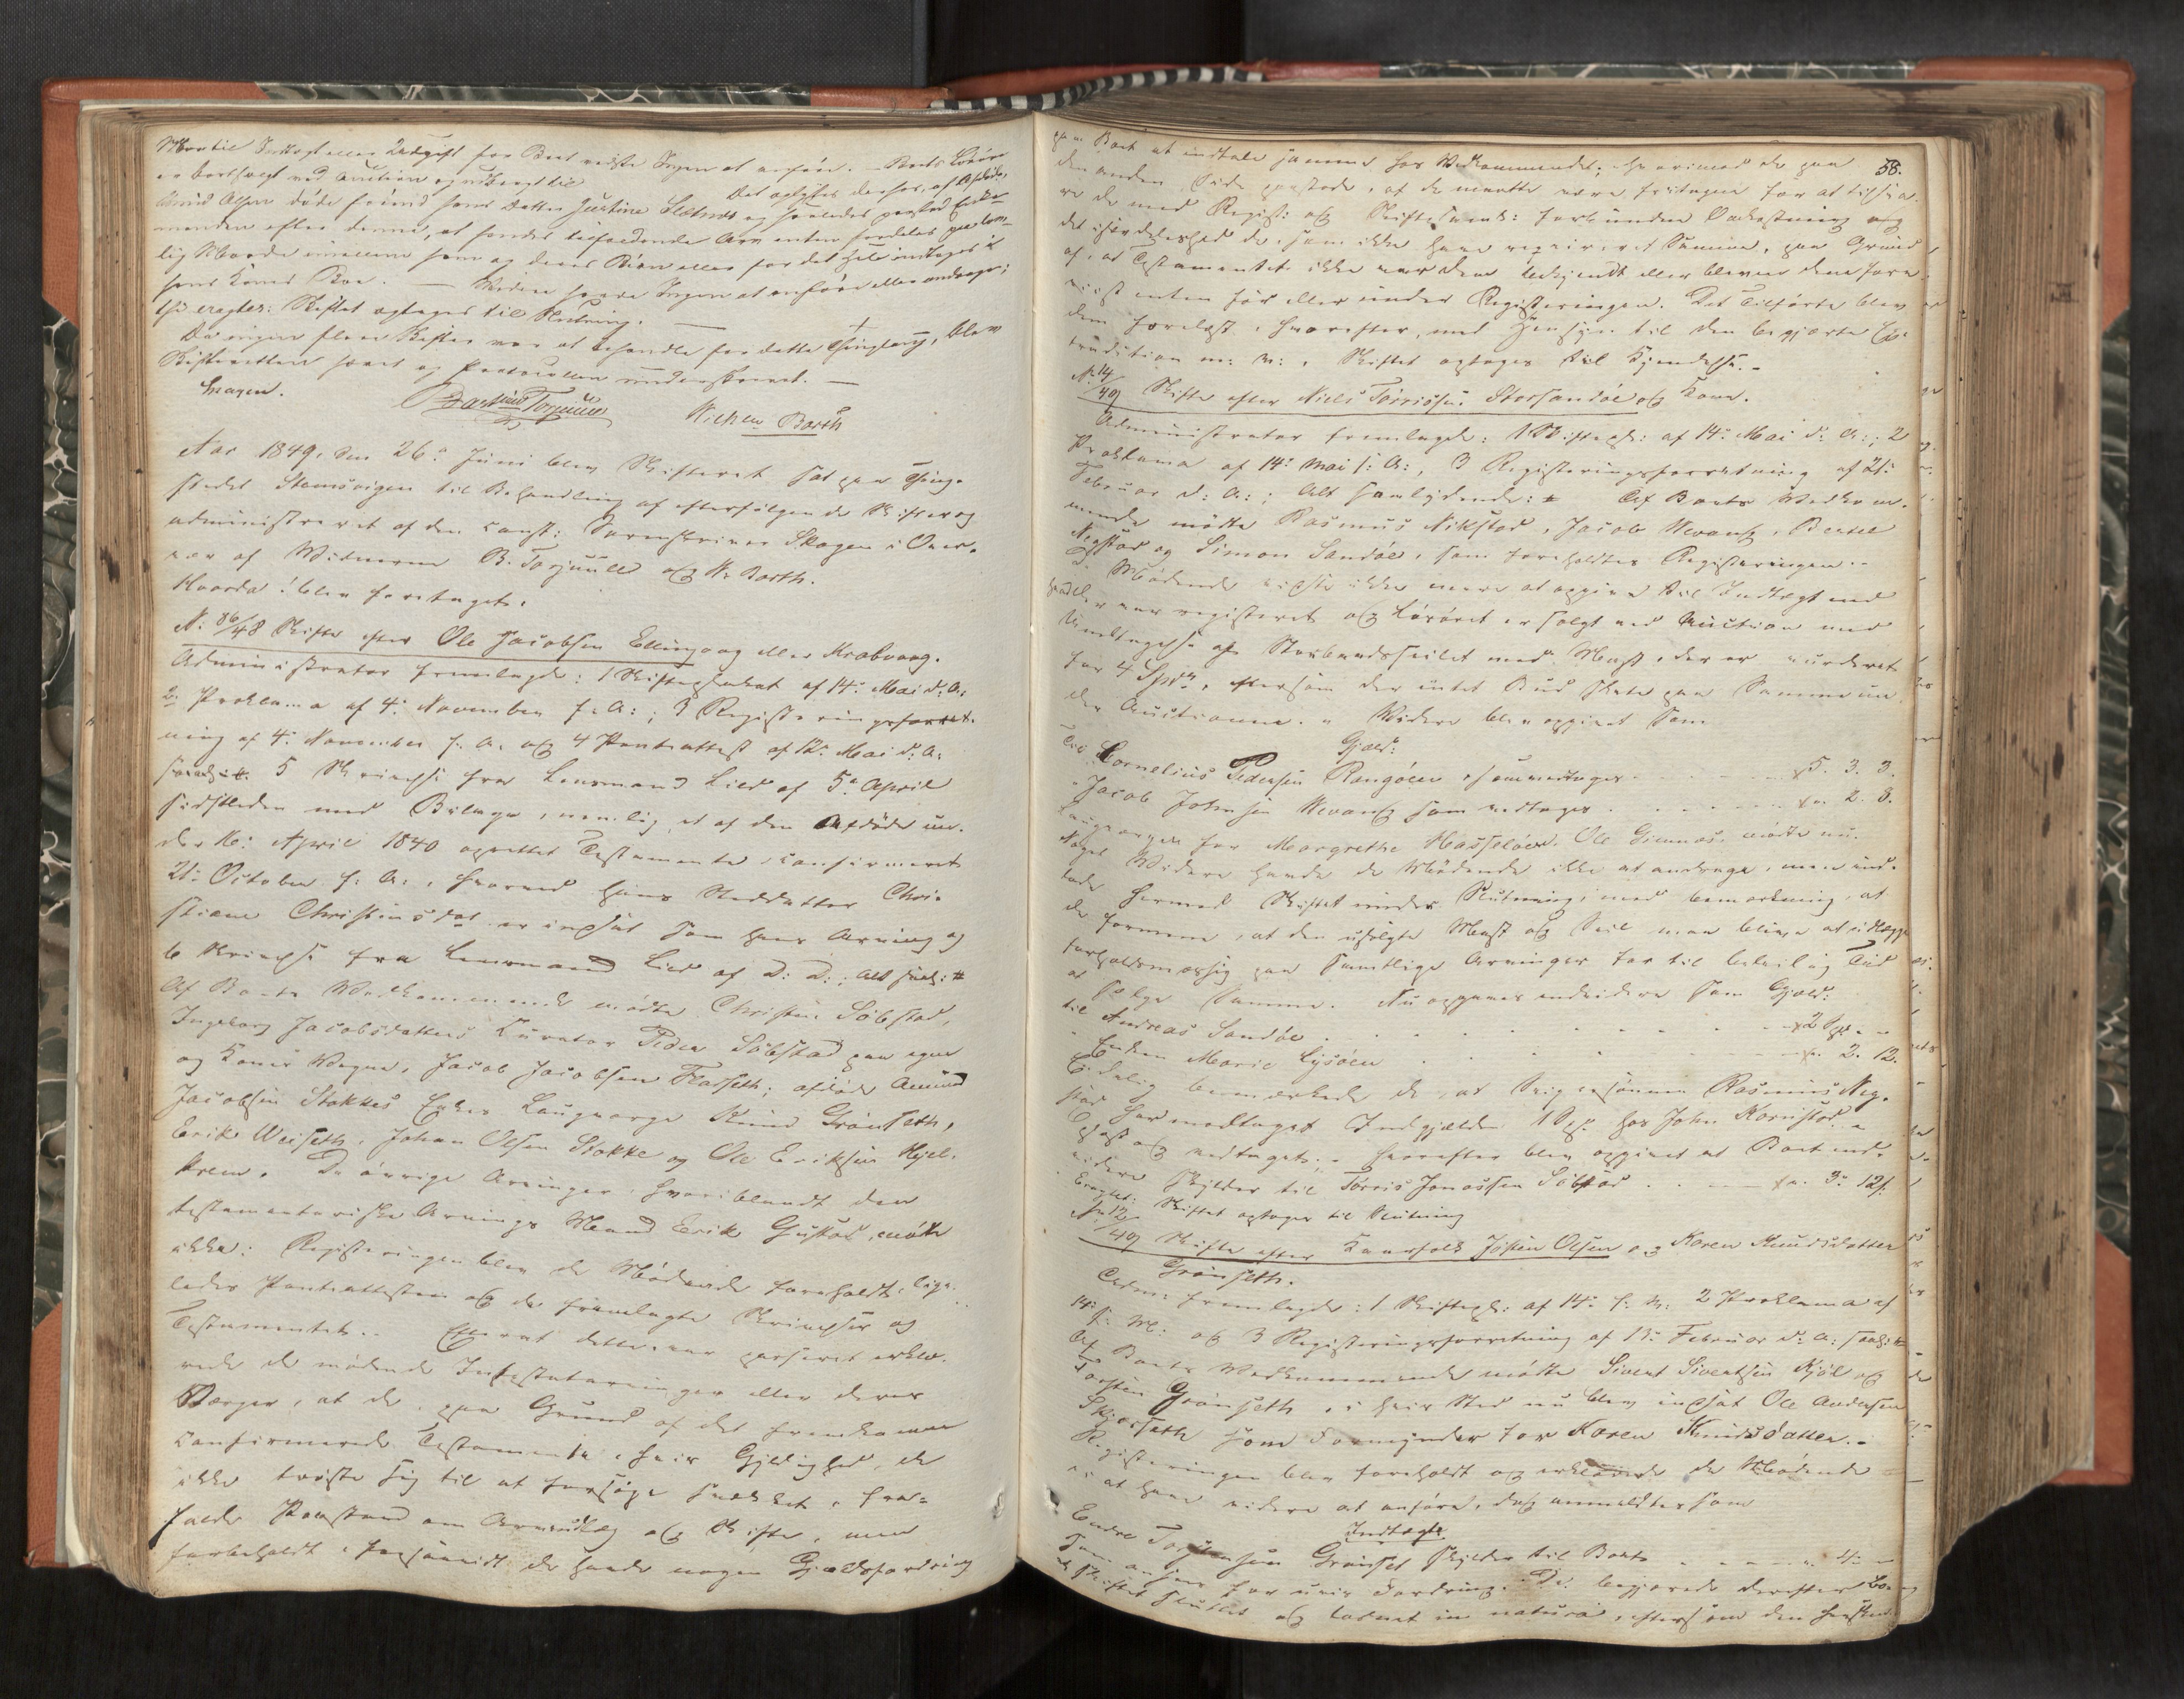 Mere til Indtægt eller Udgift for Boet vidste Ingen at anføre. Boets Løsøre
er bortsolgt ved Auction og udbragt til Det oplystes derhos, at Afdøde,
Knud Olsen døde forend hans Datter Justine og saaledes
menden efter denne, at hendes tilfaldende Arv enten fordeles paa lov-
lig Maade imellem ham og deres Børn eller for det Hele indtages i
hans Kones Boe. — Videre havde Ingen at anføre eller andrage;
thi eragtet: Skiftet optages til Slutning. —
Da ingen flere Skifter var at behandle for dette Thinglaug, blev
Skifteretten hævet og Protocollen underskrevet. —
Skagen. Bastian Torjuull Nielsen Barth
Aar 1849, den 26de Juni blev Skifteret sat paa Thing-
stedet Stemsvigen til Behandling af efterfølgende Skifter og
administreret af den const: Sorenskriver Skagen i Over-
vær af Vidnerne B. Torjuull og N. Barth.
Hvorda! blev foretaget:
N: 86/48 Skifte efter Ole Jacobsen Ellingvog eller Krabvaag.
Administrator fremlagde: 1 Skifteplakat af 14de Mai d: A:
2 Proklama af 4de November f: A:; 3 Registeringsforret-
ning af 4de November f: A: og 4 Pantattest af 12te Mai d: A:
saal: # 5 Skrivelse fra Lensmand Lied af 5te April
sidstleden med Bilage, nemlig et af den Afdøde un-
der 16: April 1840 oprettet Testamente, confirmeret
21: October s: A:, hvorved hans Steddatter Chri-
stiane Christensdat er indsat som hans Arving og
6 Skrivelse fra Lensmand Lied af D: D:; alt saal: #
Af Boets Vedkommende mødte Christen Søbstad,
Ingeborg Jacobsdatters Kurator Peder Søbstad paa egne
og Kones Vegne, Jacob Jacobsen Flasseth; afdøde Amund
Jacobsen Stokkes Enkes Laugværge Knud Grønseth,
Erik Weiseth, Johan Olsen Stokke og Ole Eriksen Hjel-
krem. De øvrige Arvinger, hvoriblandt den
testamentariske Arvings Mand Erik Gustad, mødte
ikke. Registeringen blev de Mødende foreholdt, lige-
ledes Pantattesten og de fremlagte Skrivelser og
Testamentet. Efterat dette var passeret erklæ-
rede de mødende Intestatarvinger eller deres
Værger, at de paa Grund af det fremkomne
confirmerede Testamente, hvis Gyldighed de
ikke trøste sig til at forsøge svækket, fra-
faldt Paastand om Arveudlæg og Skifte, men
forbeholdt, forsaavidt de havde nogen Gjældsfordring
58.
paa Boet at indtale samme hos Vedkommende; hvorimod de paa
den anden Side paastode, at de maatte være fritagne for at tilsva-
re de med Regist: og Skiftesaml: forbundne Omkostninger og
det isærdeleshed de, som ikke have reqvireret Samme, paa Grund
af, at Testamentet ikke var dem bekjendt eller bleven dem fore-
viist enten før eller under Registeringen. Det Tilførte blev
dem forelæst, hvorefter, med Hensyn til den begjærte Ex-
tradition m: m:, Skiftet optages til Kjendelse. -
N: 14/49 Skifte efter Niels Tørrisen Storsandøe og Kone.
Administrator fremlagde: 1 Skiftepl: af 14de Mai d: A:; 2
Proklama af 14de Mai s: A:, 3 Registeringsforretning af 21:
Februar d: A:; Alt saalydende: # Af Boets Vedkom-
mende mødte Rasmus Nikstad, Jacob Nevang, Bertel
Negstad og Simon Sandøe, som foreholdtes Registeringen. -
D. Mødende vidste ikke mere at opgive til Indtægt end
hvad der var registeret og Løsøret er solgt ved Auction med
Undtagelse af Storbaadsseilet med Mast, der er vurderet
for 4 Spd, eftersom der intet Bud skete paa Samme un-
der Auctionen. Videre blev opgivet som
Gjæld:
Til Cornelius Pedersen Rangøen, som vedtages . . . 5. 3. 3.
- Jacob Johnsen Nevang som vedtages . . . 2. 8.
Laugværgen for Margrethe Hasseløen, Ole Giemnæs mødte nu.
Noget Videre havde de Mødende ikke at andrage, men ind-
lode hermed Skiftet under Slutning, med bemærkning, at
de formene, at den usolgte Mast og Seil maa blive at udlægge
forholdsmæssig paa samtlige Arvinger for til beleilig Tid
at sælge Samme. Nu opgaves endvidere som Gjæld:
til Andreas Sandøe . . . 2 Spd. -
- Enken Marie Lysøen . . . 2. 12.
Endelig bemærkede de, at Svigersønnen Rasmus Neg-
stad har modtaget Indgjælden 1 Spd. hos John Kornstad
og vedtaget; - hvorefter blev opgivet at Boet end-
videre skylder til Tørris Jonassen Søbstad . . . 3: 12s.
Eragtet: Skiftet optages til Slutning
N: 12/49 Skifte efter Kaarfolk Josten Olsen og Karen Knudsdatter
Grønseth.
Adm: fremlagde: 1 Skiftepl: af 14de f: M: 2 Proklama af
14de s: M: og 3 Registeringsforretning af 13: Februar d: A: saal: #
Af Boets Vedkommende mødte Sivert Sivertsen Kjøl og
Torsten Grønseth, i hvis Sted nu blev indsat Ole Andersen
Skjørseth som Formynder for Karen Knudsdatter. -
Registeringen blev foreholdt og erklærede de Mødende
ei at have videre at anføre, dog anmeldtes som
Indtægt
Endre Torstensen Grønset skylder til Boet . . .
som ansees for uvis Fordring. De begjærede derefter Boe
et Skiftet sluttet og lodnet in natura, eftersom den